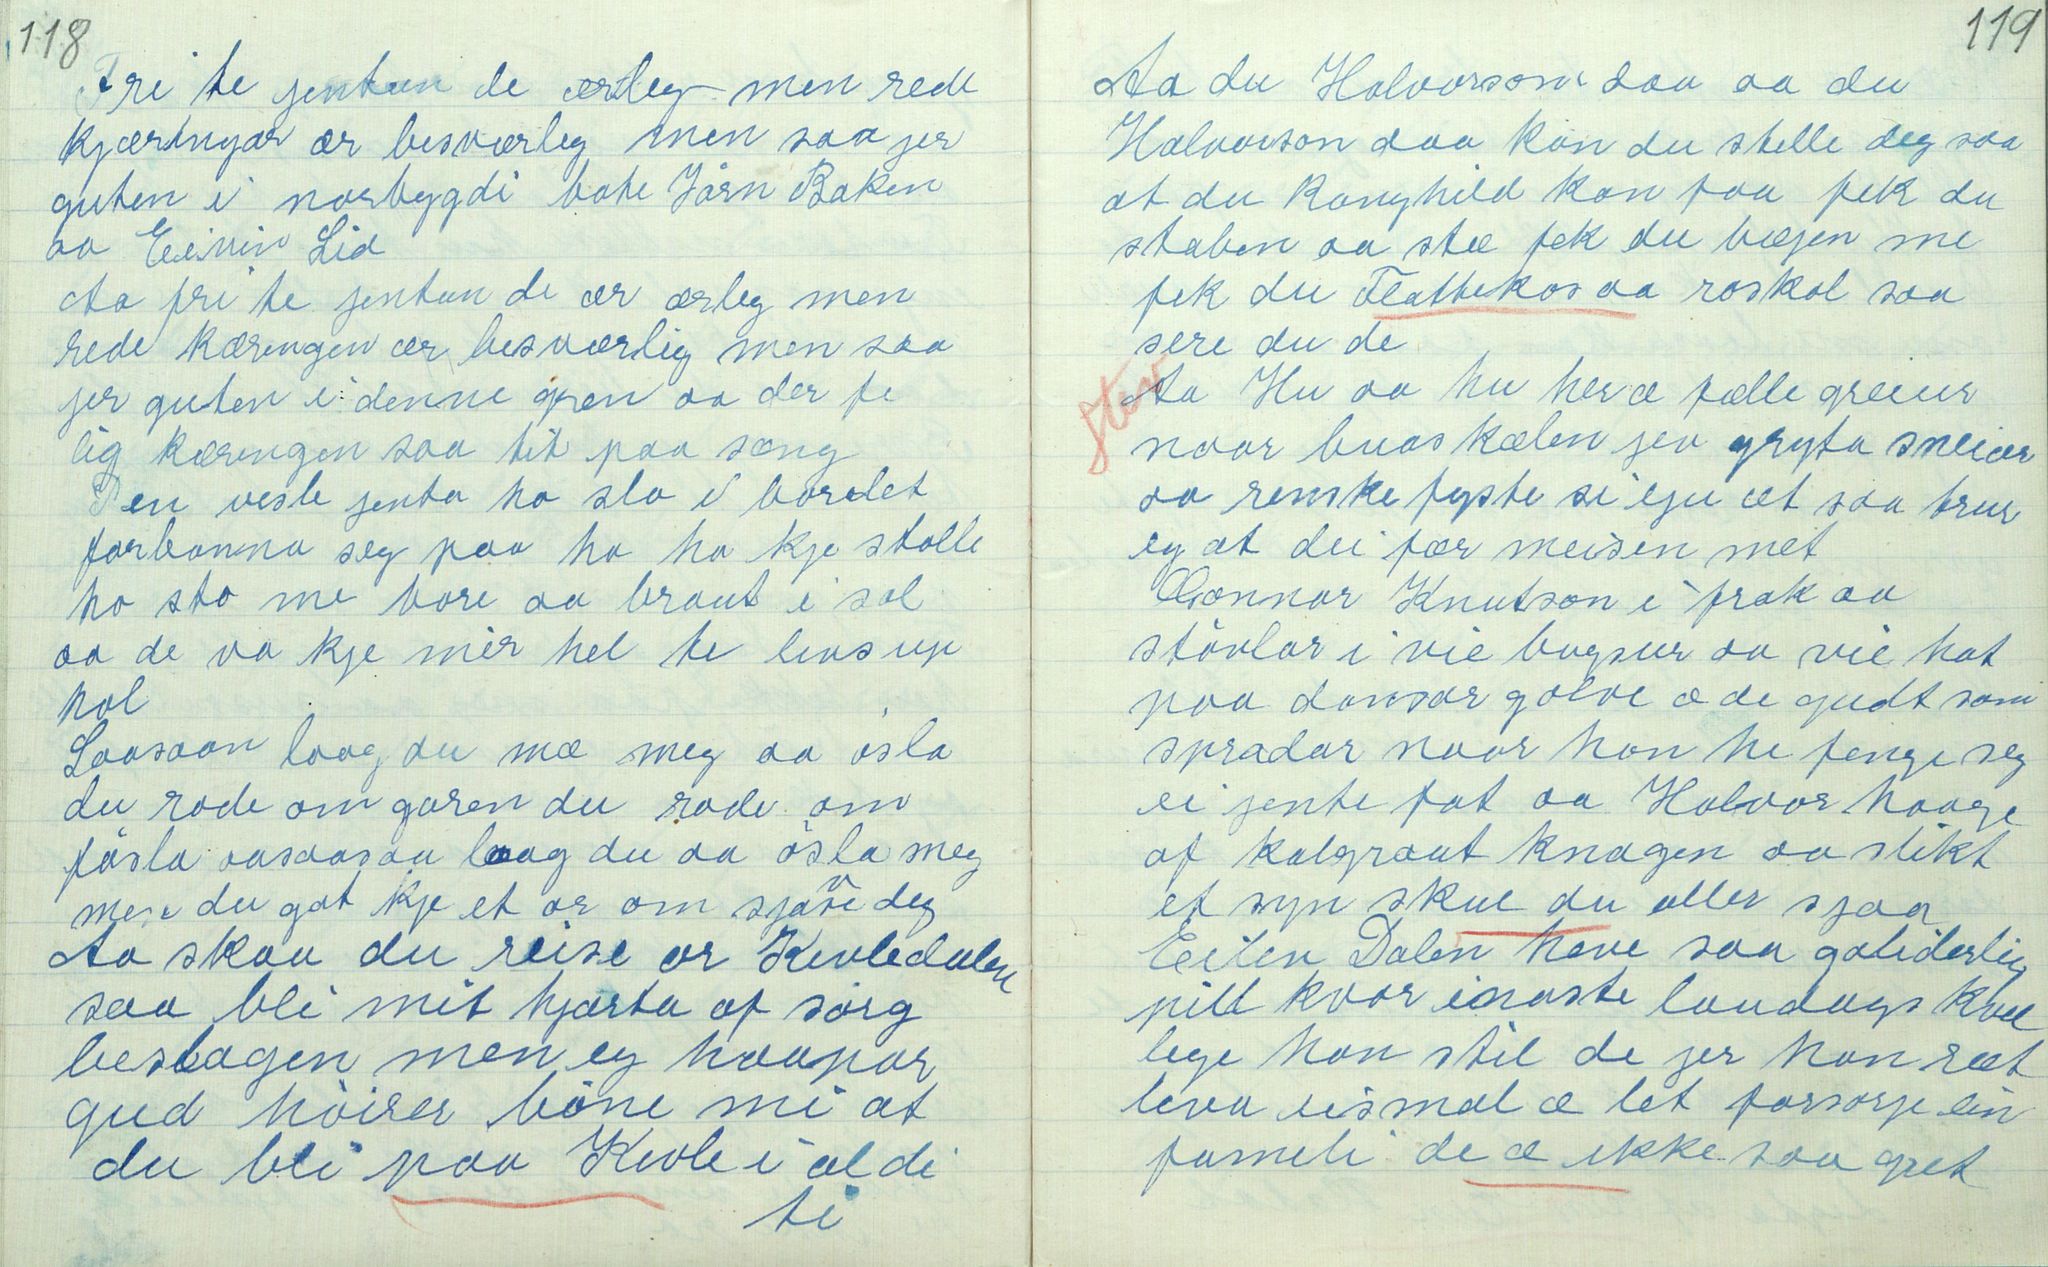 118
Fri te jentun de ærleg men rede
kjæringar ær besværleg men saa jer
guten i norbygdi bote Jørn Baken
aa Eivin Lid
Aa fri te jentun de ær ærleg men
rede kæringen ær besværlig men saa
jer guten i denne gren aa der fe
lig kæringen saa tit paa sæng
Den vesle jenta ho slo i bordet
forbanna seg paa ho ha kje stolle
ho sto me bore aa braut i sol
aa de va kje mer hel te
hol
Laasaan laag du mæ meg aa øsla
du rode om garen du rode om
føsla aasaasaa laag du aa øsla meg
men du gat kje et or om sjøve deg
Aa skaa du reise or Kivledalen
saa bli mit hjærta af sørg
beslagen men eg haapar
gud høirer bøne mi at
du bli paa Kivle i al di
ti
119
Aa du Halvorson saa aa du
Halvorson daa kan du stelle deg saa
at du Ranghild kan faa fek du
staben aa stæ fek du vægen me
fek du Flattekos aa roskal saa
sere du de
Stev
Aa Hu aa hu her æ fælle greiur
naar buaskælen jev gryta sneiar
aa renske fyste si eju æt saa trur
eg at dei fær meisen met
Gonnar Knutson i frak aa
støvlar i vie bugsur aa vie hat
paa dansar golve æ de gudt som
spradar naar han he fenge seg
ei jente fat aa Halvor haage
af kalgraut knagen aa slikt
et syn skul du aller sjaa
Eilev Dalen heve saa galiderlig
pill kvar einaste laudags kvel
lege han stil de jer han ræt
leva eismal æ let forsorje ein
fameli de æ ikke saa gret